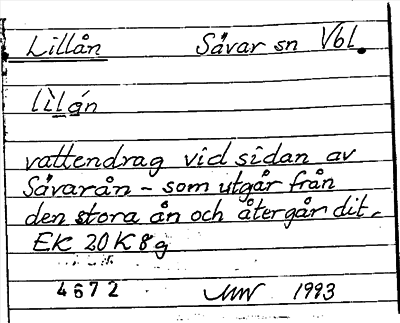 Lillån Sävar sn Vbl.
lìlǻn
vattendrag vid sidan av
Sävarån - som utgår från
den stora ån och återgår dit.
EK 20K 8g
4672 1993